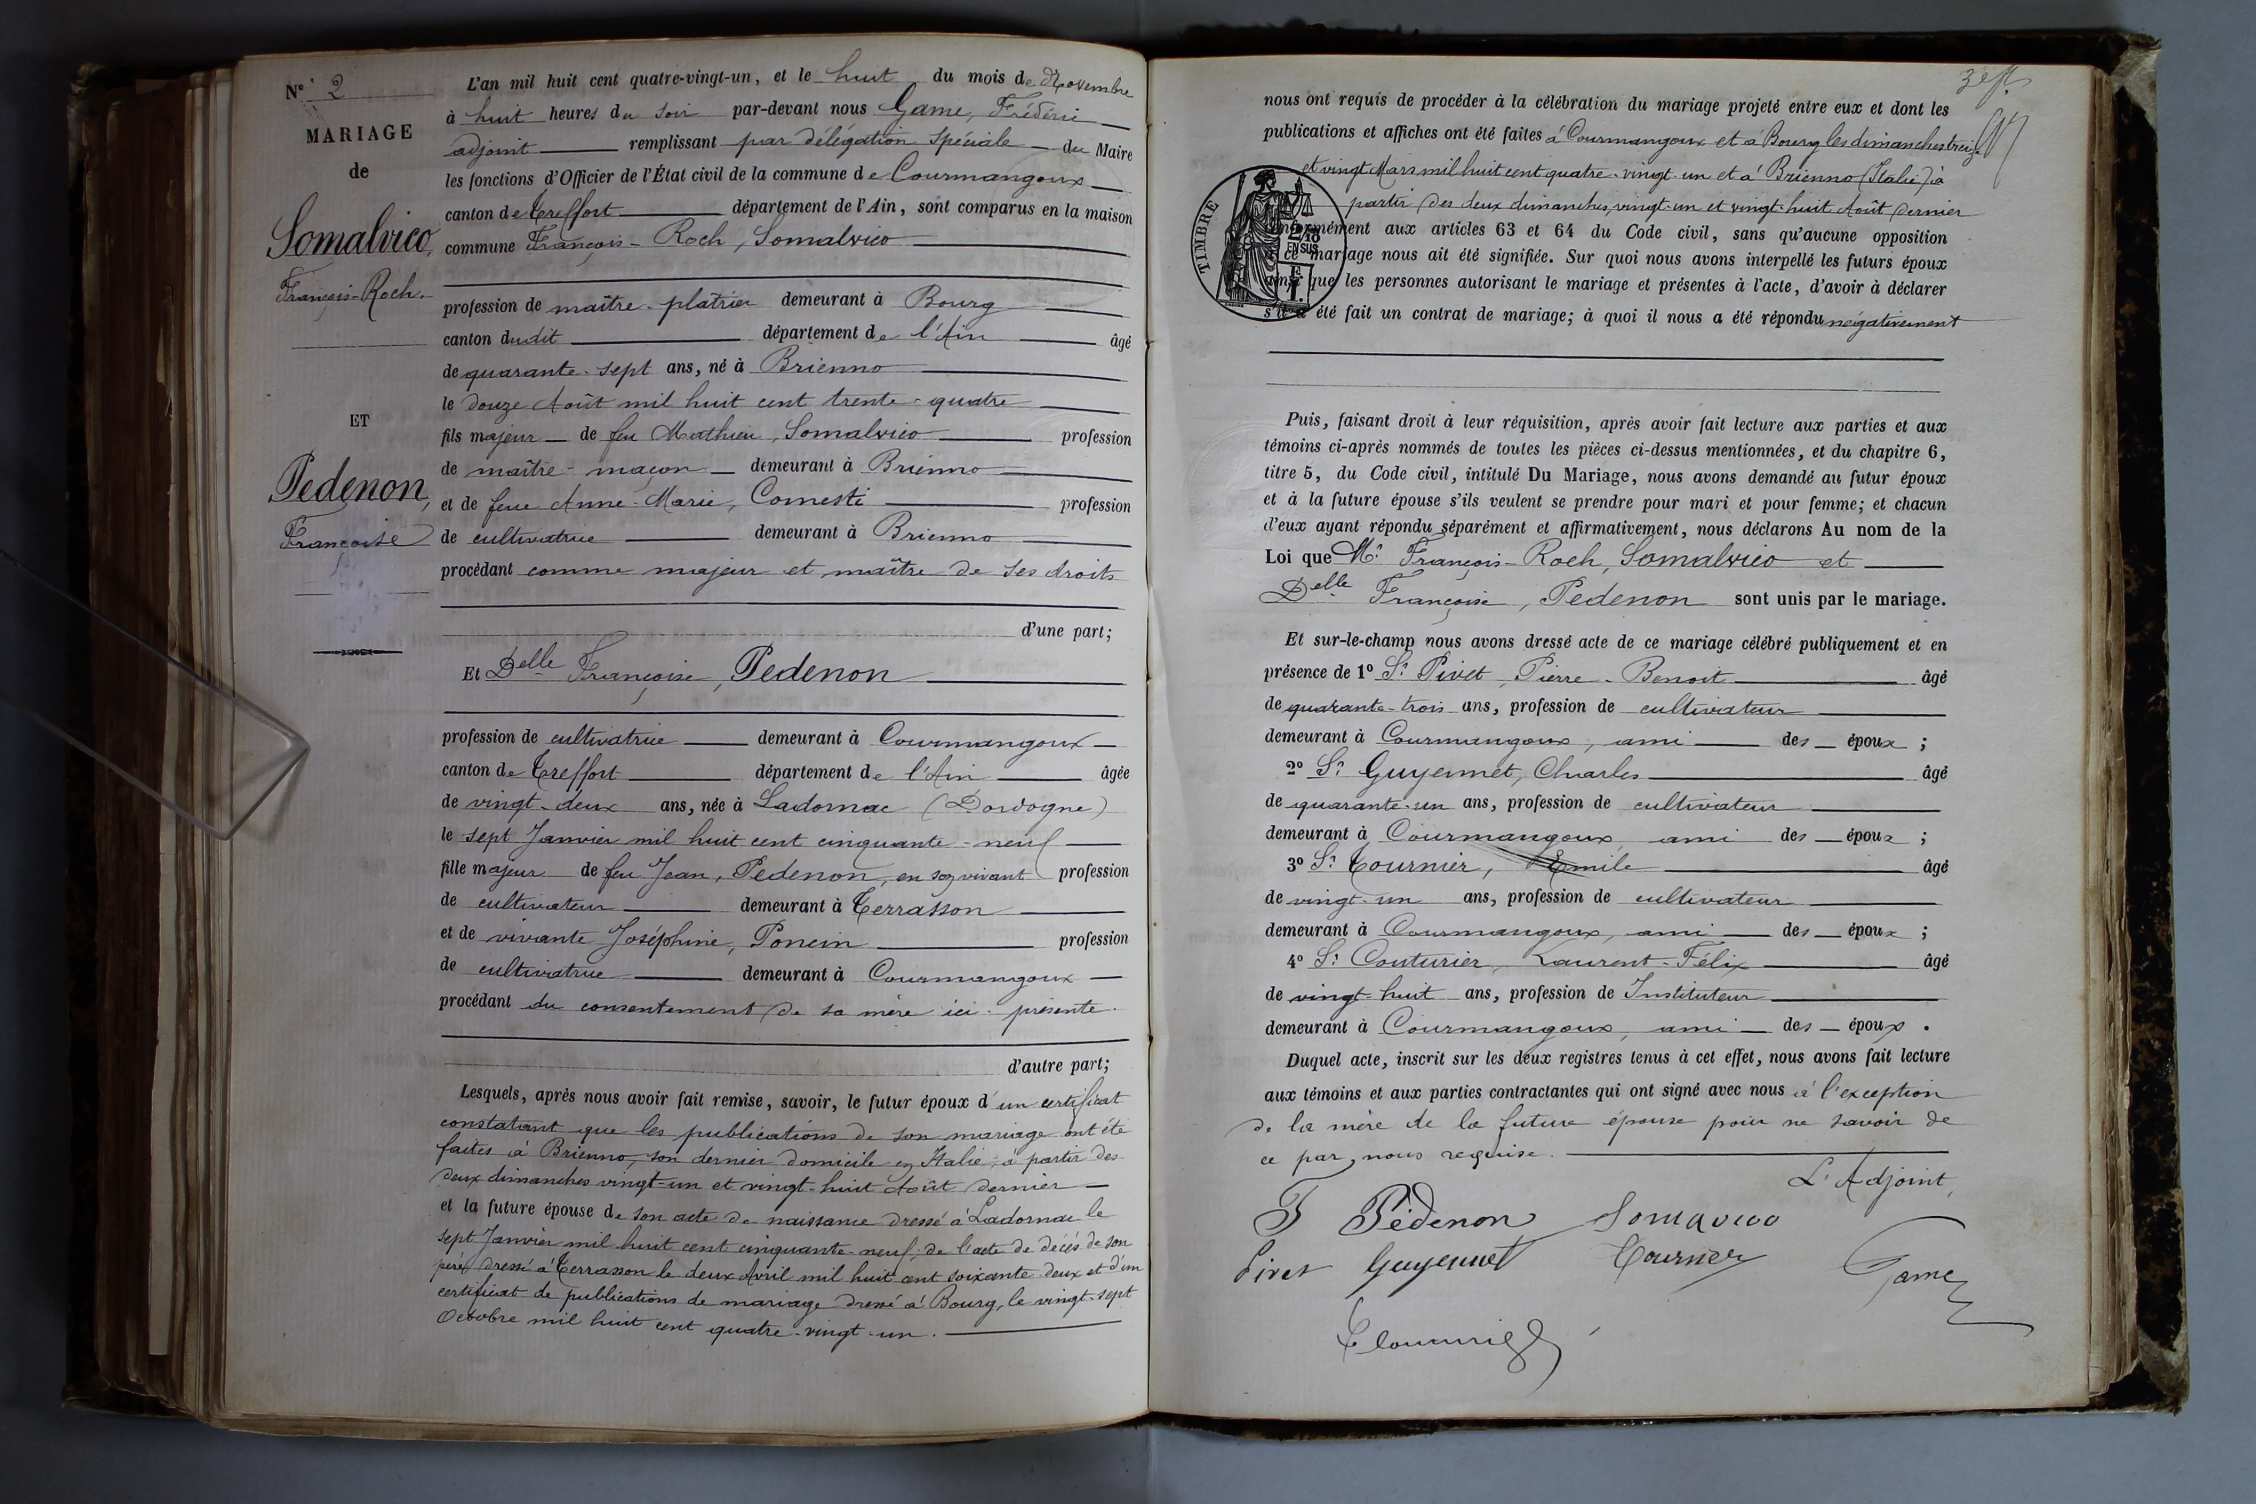 N° 2
MARIAGE
de
Somalvico,
François-Roch.
ET
Pedenon,
Françoise
L'an mil huit cent quatre-vingt-un, et le huit du mois de Novembre
à huit heures du soir par-devant nous Game, Frédéric
adjoint remplissant par délégation spéciale du Maire
les fonctions d'Officier de l'État civil de la commune de Courmangoux
canton de Treffort département de l'Ain, sont comparus en la maison
commune François-Roch, Somalvico
profession de maître-plâtrier demeurant à Bourg
canton dudit département de l'Ain âgé
de quarante-sept ans, né à Brienno
le douze Août mil huit cent trente-quatre
fils majeur de feu Mathieu, Somalvico profession
de maître-maçon demeurant à Brienno
et de feue Anne-Marie, Comesti profession
de cultivatrice demeurant à Brienno
procédant comme majeur et maître de ses droits
d'une part;
Et Delle Françoise, Pedenon
profession de cultivatrice demeurant à Courmangoux
canton de Treffort département de l'Ain âgée
de vingt-deux ans, née à Ladornac (Dordogne)
le sept Janvier mil huit cent cinquante-neuf
fille majeur de feu Jean, Pedenon, en son vivant profession
de cultivateur demeurant à Terrasson
et de vivante Joséphine, Poncin profession
de cultivatrice demeurant à Courmangoux
procédant du consentement de sa mère ici présente.
d'autre part;
Lesquels, après nous avoir fait remise, savoir, le futur époux d'un certificat
constatant que les publications de son mariage ont été
faites à Brienno, son dernier domicile en Italie, à partir des
deux dimanches vingt-un et vingt-huit Août dernier
et la future épouse de son acte de naissance dressé à Ladornac le
sept Janvier mil huit cent cinquante-neuf; de l'acte de décès de son
père dressé à Terrasson le deux Avril mil huit cent soixante-deux et d'un
certificat de publications de mariage dressé à Bourg, le vingt-sept
Octobre mil huit cent quatre-vingt-un.
nous ont requis de procéder à la célébration du mariage projeté entre eux et dont les
publications et affiches ont été faites à Courmangoux et à Bourg les dimanches treize
et vingt Mars mil huit cent quatre-vingt-un et à Brienno (Italie) à
partir des deux dimanches, vingt-un et vingt-huit Août dernier
TIMBRE
2/10
EN SUS
conformément aux articles 63 et 64 du Code civil, sans qu'aucune opposition
à ce mariage nous ait été signifiée. Sur quoi nous avons interpellé les futurs époux
ainsi que les personnes autorisant le mariage et présentes à l'acte, d'avoir à déclarer
s'il a été fait un contrat de mariage; à quoi il nous a été répondu négativement
Puis, faisant droit à leur réquisition, après avoir fait lecture aux parties et aux
témoins ci-après nommés de toutes les pièces ci-dessus mentionnées, et du chapitre 6,
titre 5, du Code civil, intitulé Du Mariage, nous avons demandé au futur époux
et à la future épouse s'ils veulent se prendre pour mari et pour femme; et chacun
d'eux ayant répondu séparément et affirmativement, nous déclarons Au nom de la
Loi que Mr François-Roch, Somalvico et
Delle Françoise, Pedenon sont unis par le mariage.
Et sur-le-champ nous avons dressé acte de ce mariage célébré publiquement et en
présence de 1° Sr Pivet, Pierre-Benoit âgé
de quarante-trois ans, profession de cultivateur
demeurant à Courmangoux, ami des époux ;
2° Sr Guyennet, Charles âgé
de quarante-un ans, profession de cultivateur
demeurant à Courmangoux, ami des époux ;
3° Sr Tournier, Emile âgé
de vingt-un ans, profession de cultivateur
demeurant à Courmangoux, ami des époux ;
4° Sr Couturier, Laurent-Félix âgé
de vingt-huit ans, profession de Instituteur
demeurant à Courmangoux, ami des époux.
Duquel acte, inscrit sur les deux registres tenus à cet effet, nous avons fait lecture
aux témoins et aux parties contractantes qui ont signé avec nous à l'exception
de la mère de la future épouse pour ne savoir de
ce par nous requise.
L'Adjoint,
F Pédenon Somavico
Pivet Guyennet Tournier Game